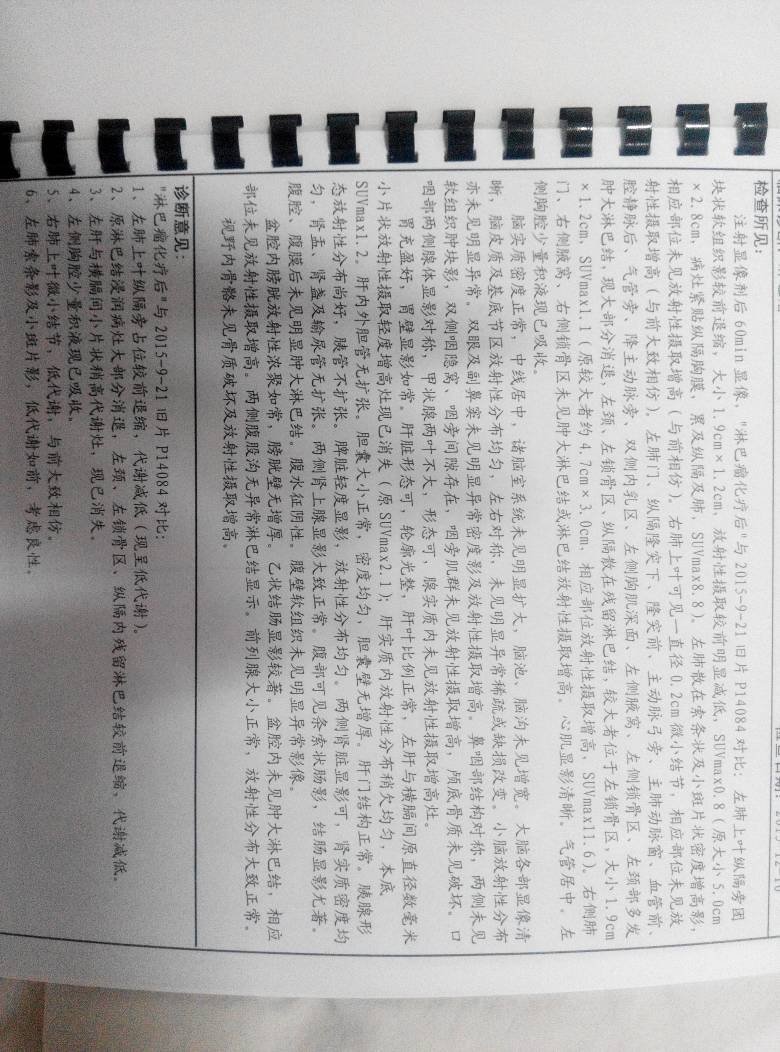 检查所见：
注射显像剂后 60min 显像，"淋巴瘤化疗后"与 2015-9-21 旧片 P14084 对比：左肺上叶纵隔旁团
块状软组织影较前退缩，大小 1.9cm×1.2cm，放射性摄取较前明显减低，SUVmax0.8（原大小 5.0cm
×2.8cm，病灶紧贴纵隔胸膜，累及纵隔及肺，SUVmax8.8）。左肺散在索条状及小斑片状密度增高影，
相应部位未见放射性摄取增高（与前相仿）。右肺上叶可见一直径 0.2cm 微小结节，相应部位未见放
射性摄取增高（与前大致相仿）。左肺门、纵隔隆突下、隆突前、主动脉弓旁、主肺动脉窗、血管前、
腔静脉后、气管旁、降主动脉旁、双侧内乳区、左侧胸肌深面、左侧腋窝、左侧锁骨区、左颈部多发
肿大淋巴结，现大部分消退，左颈、左锁骨区、纵隔散在残留淋巴结，较大者位于左锁骨区，大小 1.9cm
×1.2cm，SUVmax1.1（原较大者约 4.7cm×3.0cm，相应部位放射性摄取增高，SUVmax11.6）。右侧肺
门、右侧腋窝、右侧锁骨区未见肿大淋巴结或淋巴结放射性摄取增高。心肌显影清晰。气管居中。左
侧胸腔少量积液现已吸收。
脑实质密度正常，中线居中，诸脑室系统未见明显扩大，脑池、脑沟未见增宽。大脑各部显像清
晰，脑皮质及基底节区放射性分布均匀，左右对称，未见明显异常稀疏或缺损改变。小脑放射性分布
亦未见明显异常。双眼及副鼻窦未见明显异常密度影及放射性摄取增高。鼻咽部结构对称，两侧未见
软组织肿块影，双侧咽隐窝、咽旁间隙存在，咽旁肌群未见放射性摄取增高，颅底骨质未见破坏。口
咽部两侧腺体显影对称，甲状腺两叶不大，形态可，腺实质内未见放射性摄取增高灶。
胃充盈好，胃壁显影如常。肝脏形态可，轮廓光整，肝叶比例正常，左肝与横膈间原直径数毫米
小片状放射性摄取轻度增高灶现已消失（原 SUVmax2.1）；肝实质内放射性分布稍欠均匀，本底
SUVmax1.2。肝内外胆管无扩张。胆囊大小正常，密度均匀，胆囊壁无增厚。肝门结构正常。胰腺形
态放射性分布尚好，胰管不扩张。脾脏轻度显影，放射性分布均匀。两侧肾脏显影可，肾实质密度均
匀，肾盂、肾盏及输尿管无扩张。两侧肾上腺显影大致正常。腹部可见条索状肠影，结肠显影尤著。
腹腔、腹膜后未见明显肿大淋巴结。腹水征阴性。腹壁软组织未见明显异常影像。
盆腔内膀胱放射性浓聚如常，膀胱壁无增厚。乙状结肠显影较著。盆腔内未见肿大淋巴结，相应
部位未见放射性摄取增高。两侧腹股沟无异常淋巴结显示。前列腺大小正常，放射性分布大致正常。
视野内骨骼未见骨质破坏及放射性摄取增高。
诊断意见：
"淋巴瘤化疗后"与 2015-9-21 旧片 P14084 对比：
1、左肺上叶纵隔旁占位较前退缩，代谢减低（现呈低代谢）。
2、原淋巴结浸润病灶大部分消退，左颈、左锁骨区、纵隔内残留淋巴结较前退缩，代谢减低。
3、左肝与横膈间小片状稍高代谢灶，现已消失。
4、左侧胸腔少量积液现已吸收。
5、右肺上叶微小结节，低代谢，与前大致相仿。
6、左肺索条影及小斑片影，低代谢如前，考虑良性。